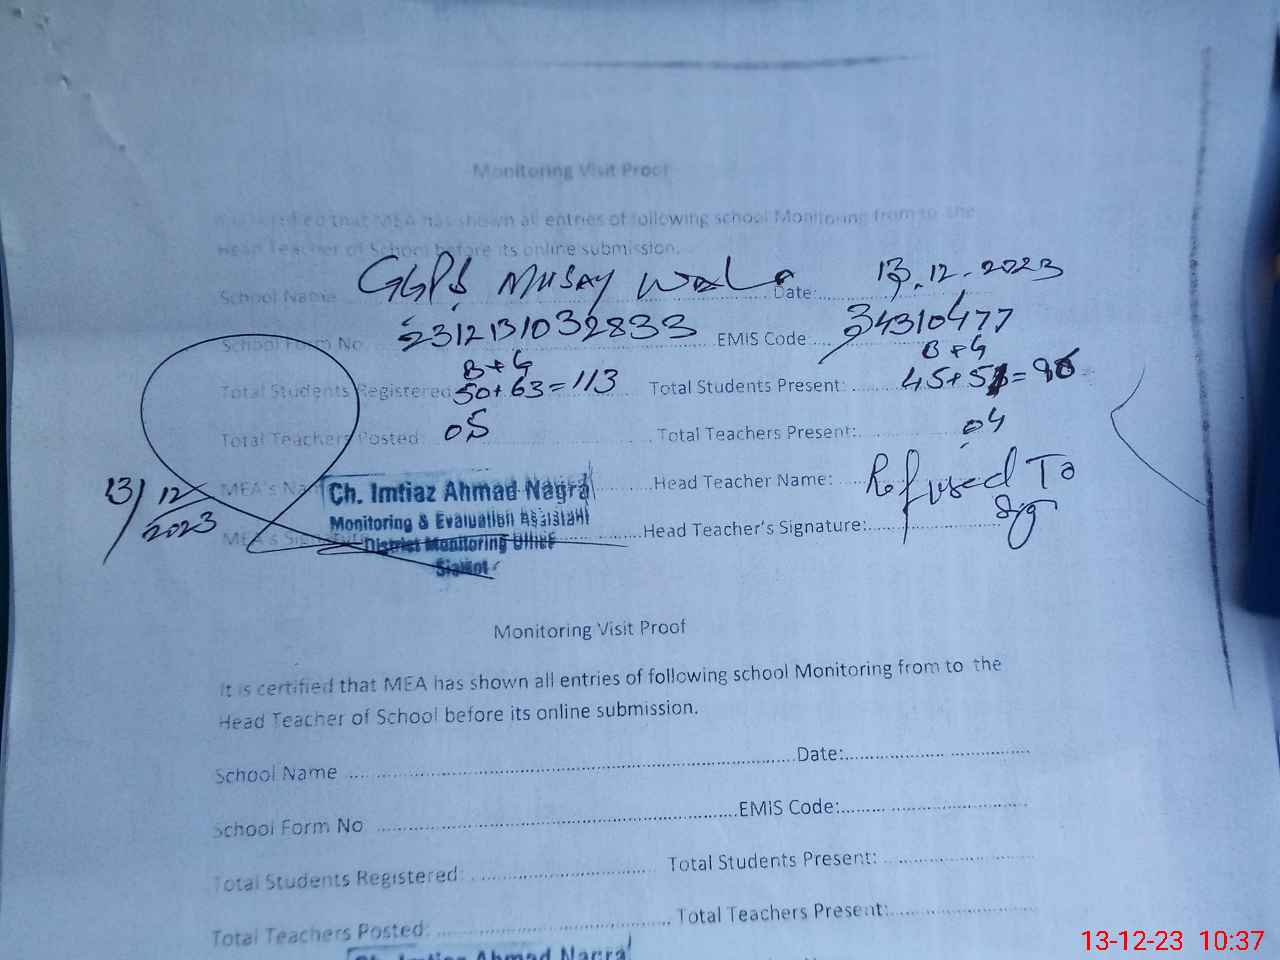 Monitoring Visit Proof
It is certified that MEA has shown all entries of following school Monitoring from to the
Head Teacher of School before its online submission.
School Name GGPS MUSAY Wala Date: 13.12.2023
School Form No 2312131032833 EMIS Code 34310477
B+G B+G
Total Students Registered 50+63=113 Total Students Present: 45+51=96
Total Teachers Posted: 05 Total Teachers Present: 04
MEA's Na Ch. Imtiaz Ahmad Nagra Head Teacher Name: Refused To
13/12/2023 Monitoring & Evaluation Assistant
MEA's Signature District Monitoring Office Head Teacher's Signature: Sign
Sialkot
Monitoring Visit Proof
It is certified that MEA has shown all entries of following school Monitoring from to the
Head Teacher of School before its online submission.
School Name Date:
School Form No EMIS Code:
Total Students Registered: Total Students Present:
Total Teachers Posted: Total Teachers Present:
Ch. Imtiaz Ahmad Nagra
13-12-23 10:37